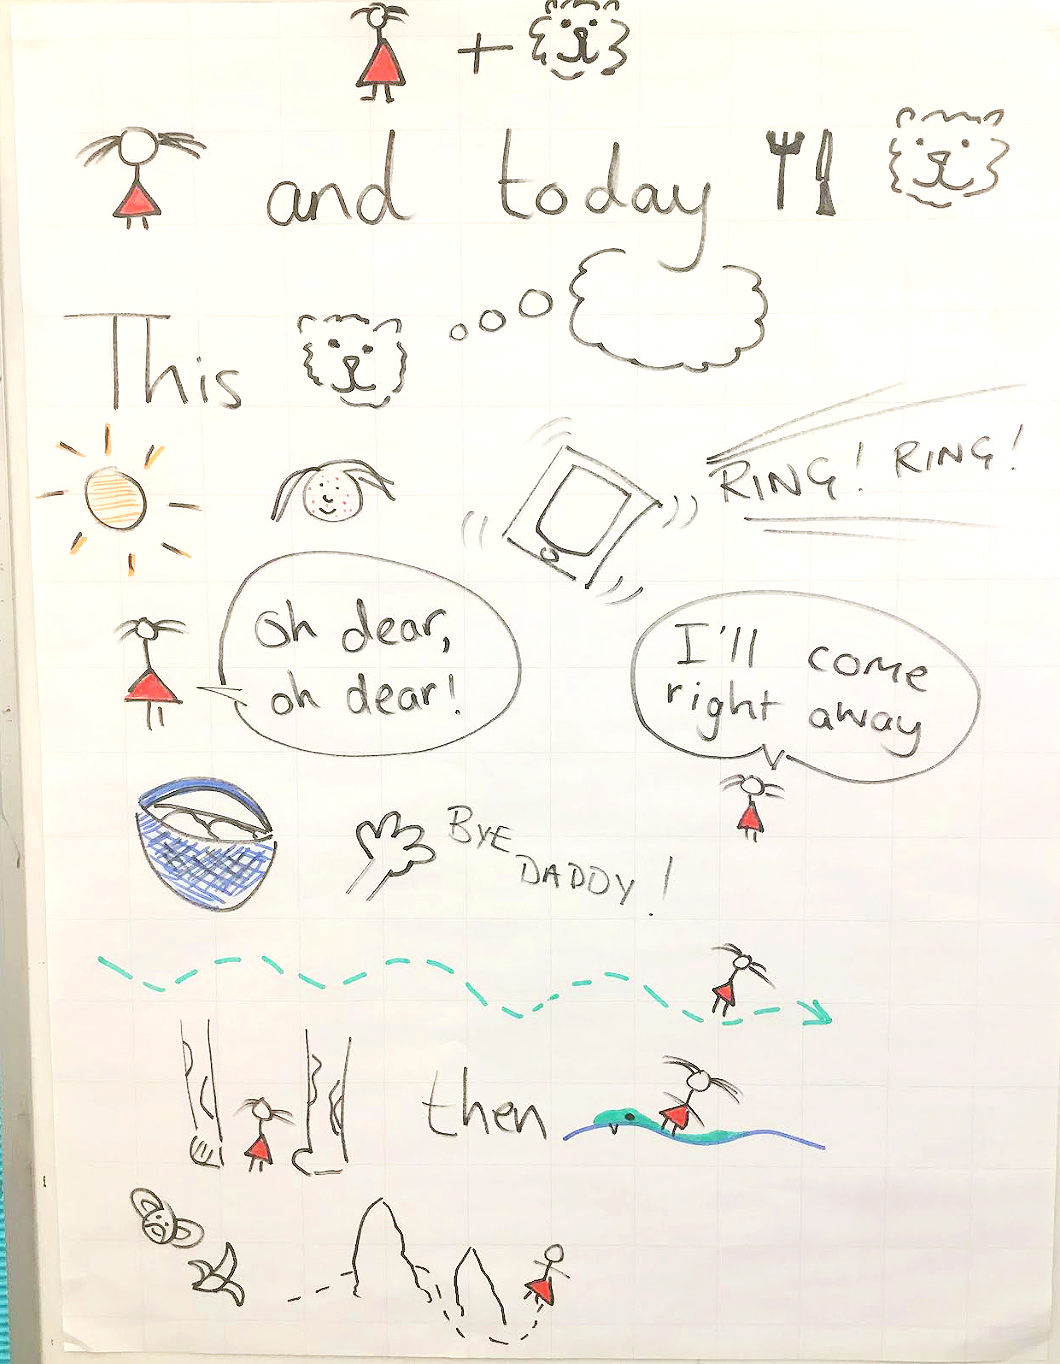 +
and today
This
RING! RING!
Oh dear,
oh dear!
I'll come
right away
BYE
DADDY!
then